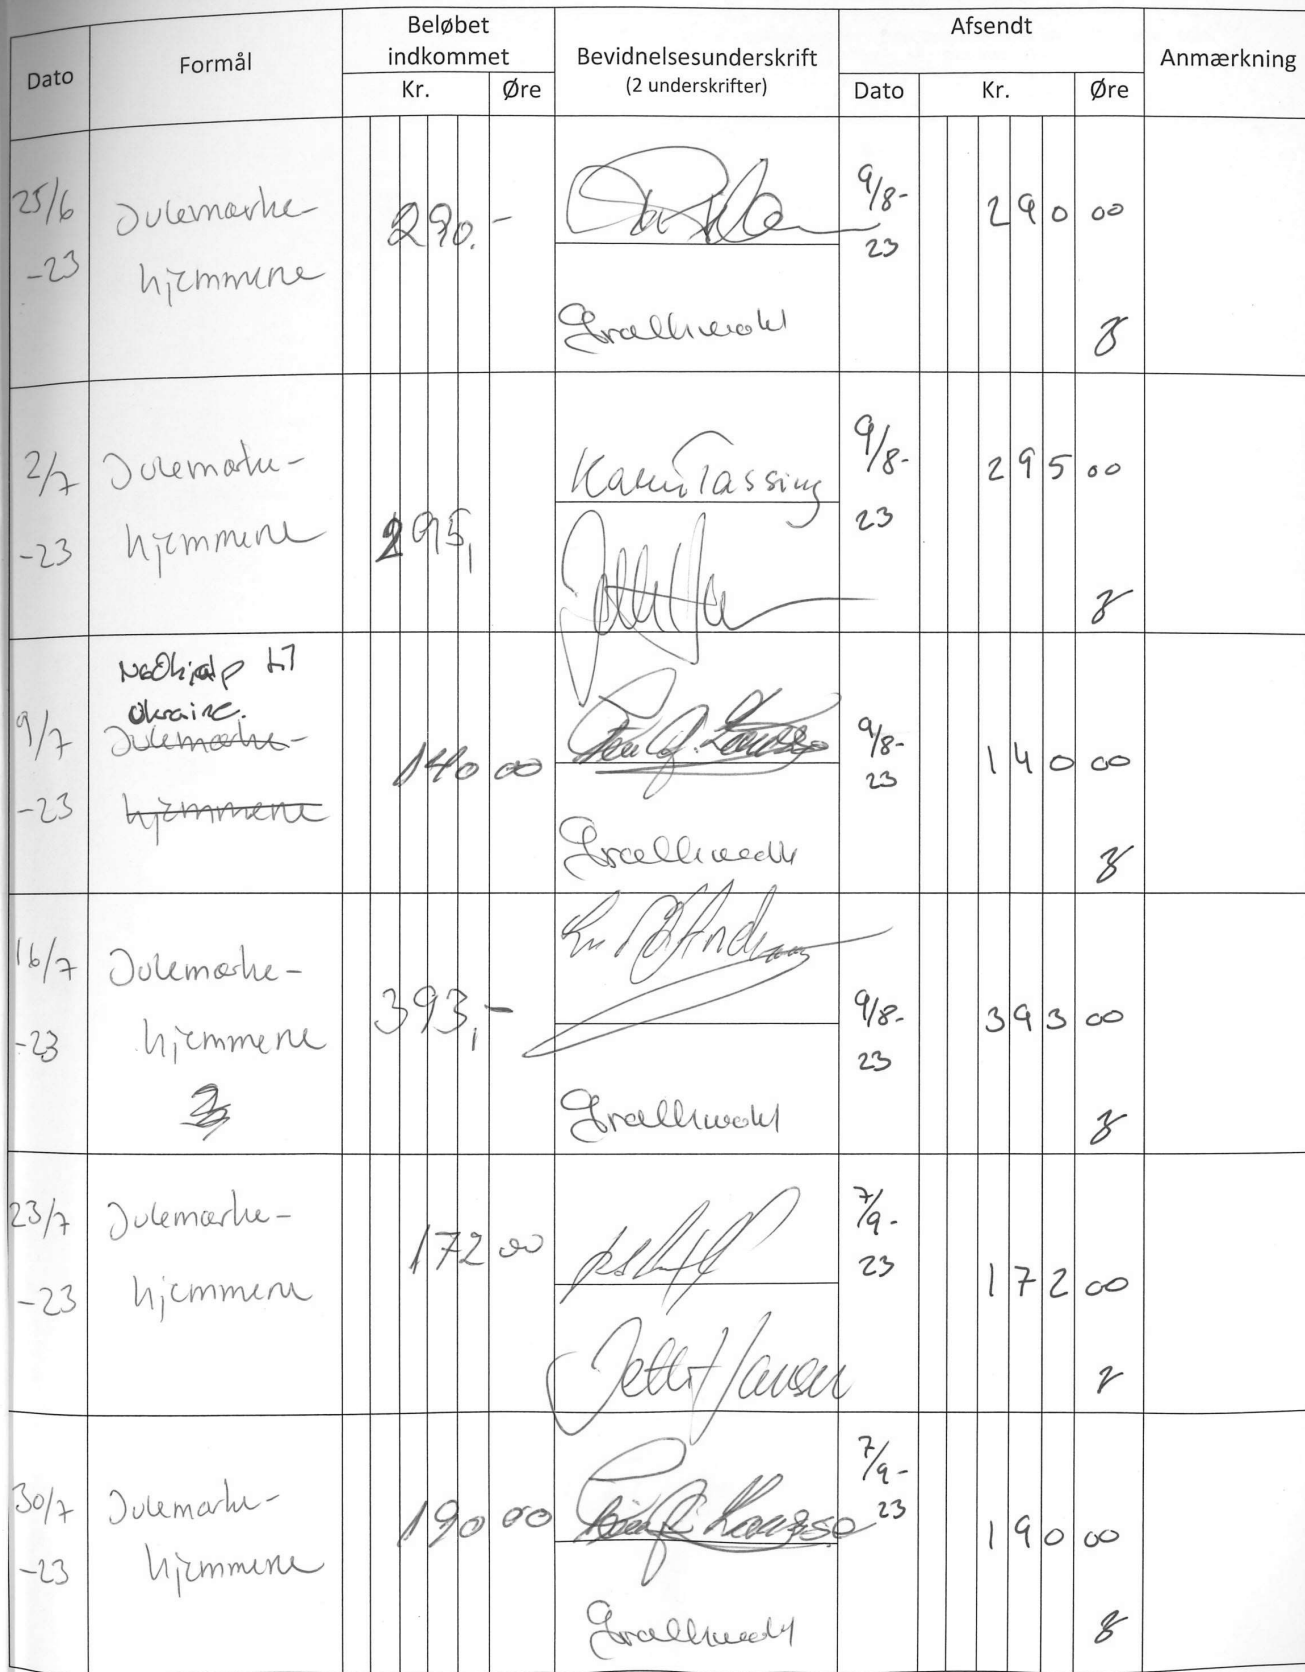 Dato
Formål
Beløbet
indkommet
Kr.
Øre
Bevidnelsesunderskrift
(2 underskrifter)
Afsendt
Dato
Kr.
Øre
Anmærkning
25/6
-23
Julemærke-
hjemmene
290.-
9/8-
23
290 00
2/7
-23
Julemærke-
hjemmene
295,
Karen Tassing
9/8-
23
295 00
9/7
-23
Nødhjælp til
Ukraine.
Julemærke-
hjemmene
140 00
9/8-
23
140 00
16/7
-23
Julemærke-
hjemmene
393,-
9/8-
23
393 00
23/7
-23
Julemærke-
hjemmene
172 00
Jette Hansen
7/9-
23
172 00
30/7
-23
Julemærke-
hjemmene
190 00
7/9-
23
190 00